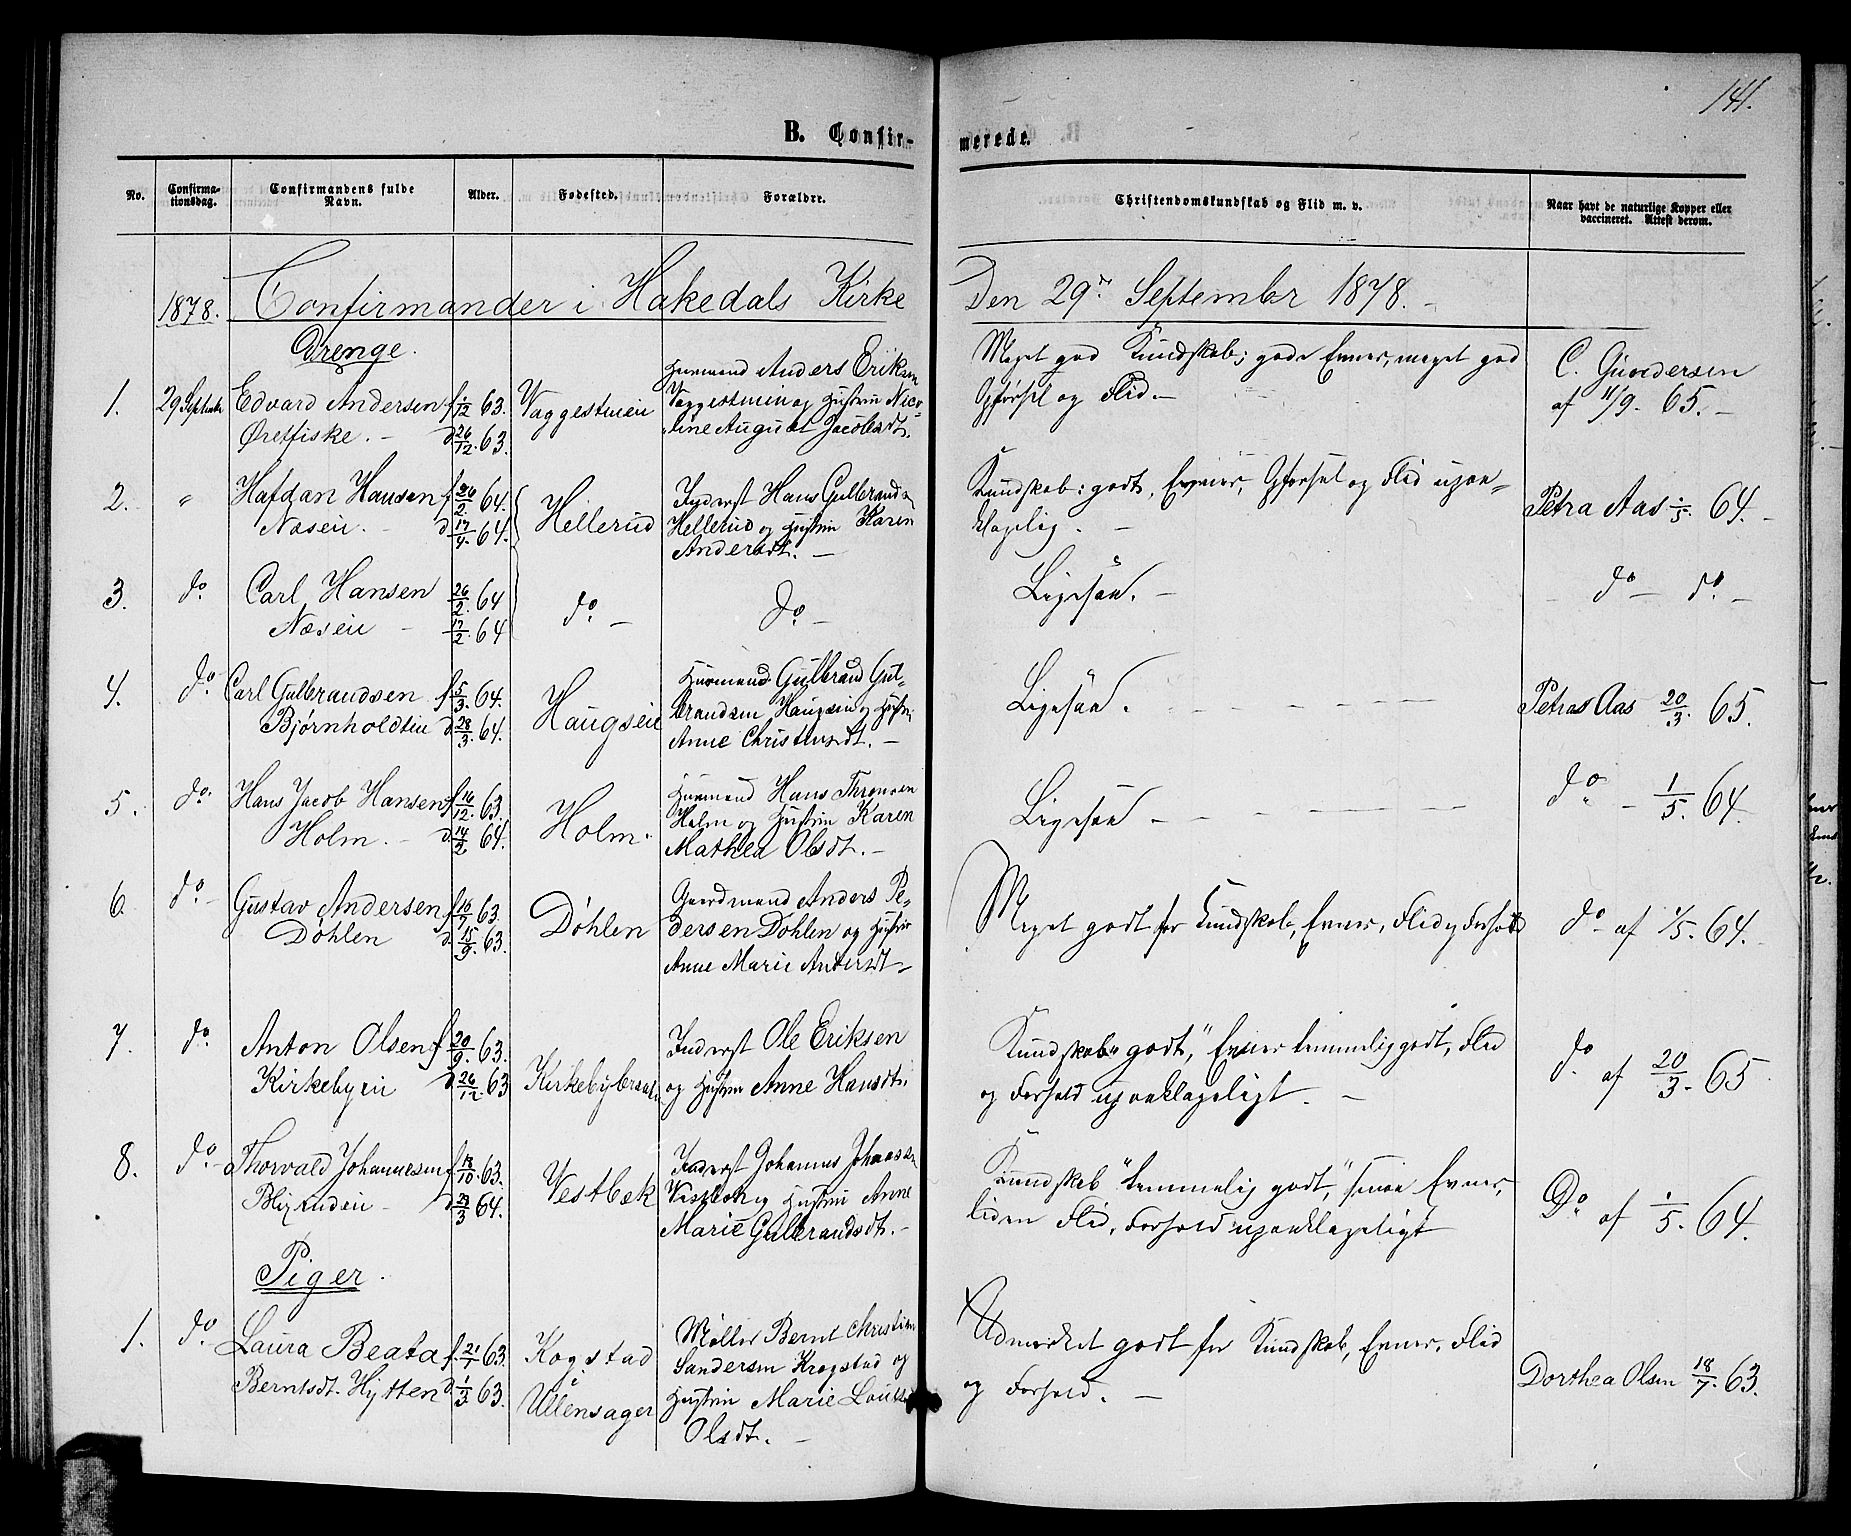 141.
B. Confir-
merede.
No. Confirma-tionsdag. Confirmandens fulde Navn. Alder. Fødested. Forældre. Christendomskundskab og Flid m. v. Naar havt de naturlige Kopper eller vaccineret. Attest derom.
1878. Confirmander i Hakedals Kirke Den 29de September 1878.
Drenge.
1. 29 Septembr Edvard Andersen f 1/12 63. Vaggesteneie Huusmand Anders Eriksen Meget god Kundskab; gode Evner, meget god C. Gundersen
Øretfiske. d 26/12. 63. og Hustru Nico- Opførsel og Flid. af 11/9. 65.
line August Jacobsdt.
2. " Hafdan Hansen f 26/2. 64. Hellerud Inderst Hans Gulbrands. Kundskab: godt, Evner, Opførsel og Flid upaa- Petra Aas 1/5. 64.
Næseie d 17/4. 64. Hellerud og Hustru Karen klagelig.
Andersdt.
3. do. Carl Hansen 26/2. 64 do. do. Ligesaa. do do.
Næseie 17/2. 64
4. do. Carl Gulbrandsen f 5/3. 64. Haugseie Huusmand Gulbrand Gul- Ligesaa. Petra Aas 20/3. 65.
Bjørnholdteie d 28/3. 64. brandsen Haugseie og Hustru
Anne Christensdt.
5. do. Hans Jacob Hansen f 16/12. 63. Holm. Huusmand Hans Thronsen Ligesaa do. 1/5. 64.
Holm. d. 14/2 64. Holm og Hustru Karen
Mathea Olsdt.
6. do. Gustav Andersen f 10/7 63. Döhlen Gaardmand Anders Pe- Meget godt for Kundskab, Evner, Flid og Forhold do. af 1/5. 64.
Döhlen d. 15/9. 63. dersen Döhlen og Hustru
Anne Marie Andersdt.
7. do. Anton Olsen f 20/9. 63. Inderst Ole Eriksen Kundskab "godt," Evner temmelig godt, Flid do. af 20/3. 65
Kirkebyeie d 26/12. 63 og Hustru Anne Hansdt. og Forhold upaaklageligt.
8. do. Thorvald Johannesen f 13/10. 63. Vestbek Inderst Johannes Kundskab "temmelig godt," smaa Evner, Do. af 1/5. 64.
d 23/3 64. Vestbek og Hustru Anne liden Flid, Forhold upaaklageligt
Marie Gulbrandsdt.
Piger.
1. do. Laura Beata f. 21/1 63. Kogstad Møller Bernt Christian Udmærket godt for Kundskab, Evner, Flid Dorthea Olsen 18/7. 63.
Berntsdt. Hytten d 1/3 63. i Sandersen Krogstad og og Forhold.
Ullensager Hustru Marie Louise
Olsdt.